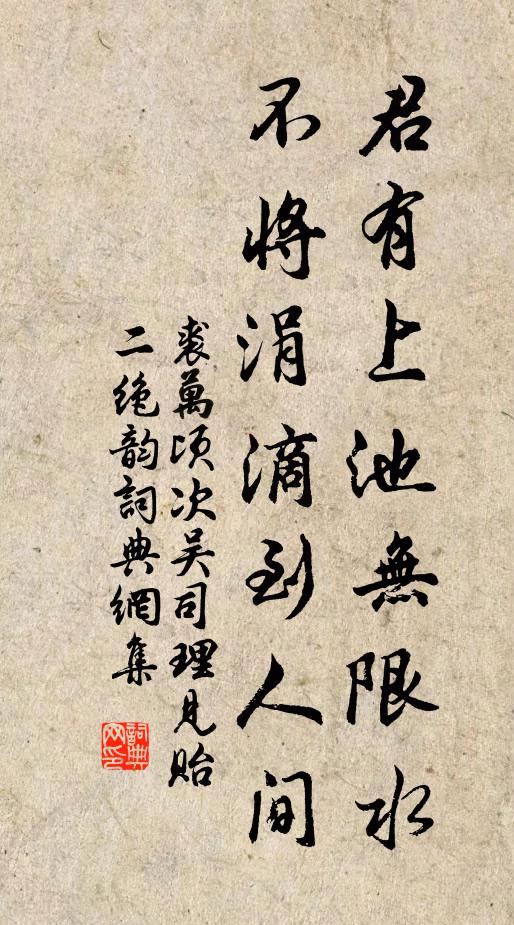 君有上池無限水
不將涓滴到人間
裘萬頃次吴司理見貽
二绝韵詞典網集
詞典网印